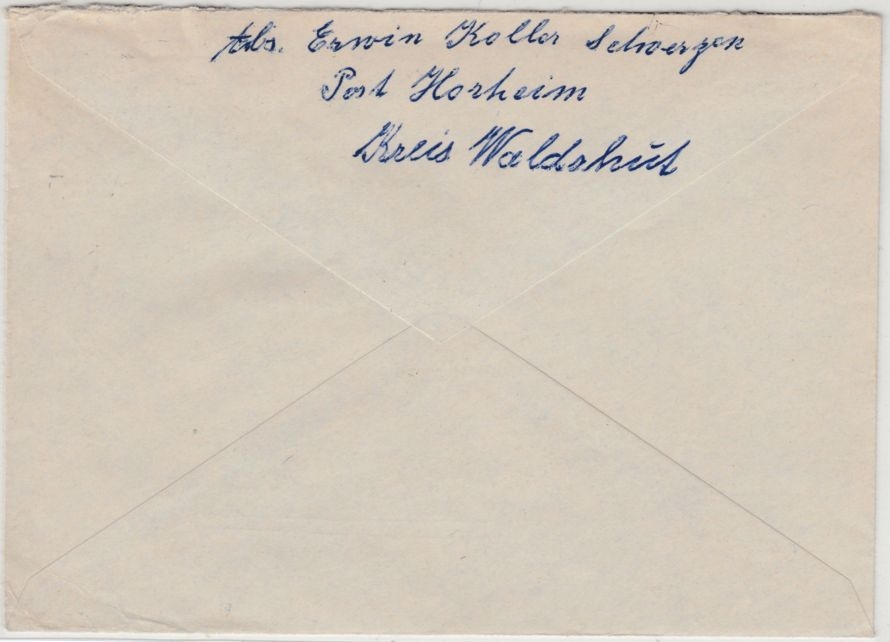 Abs. Erwin Koller Schwerzen
Post Horheim
Kreis Waldshut